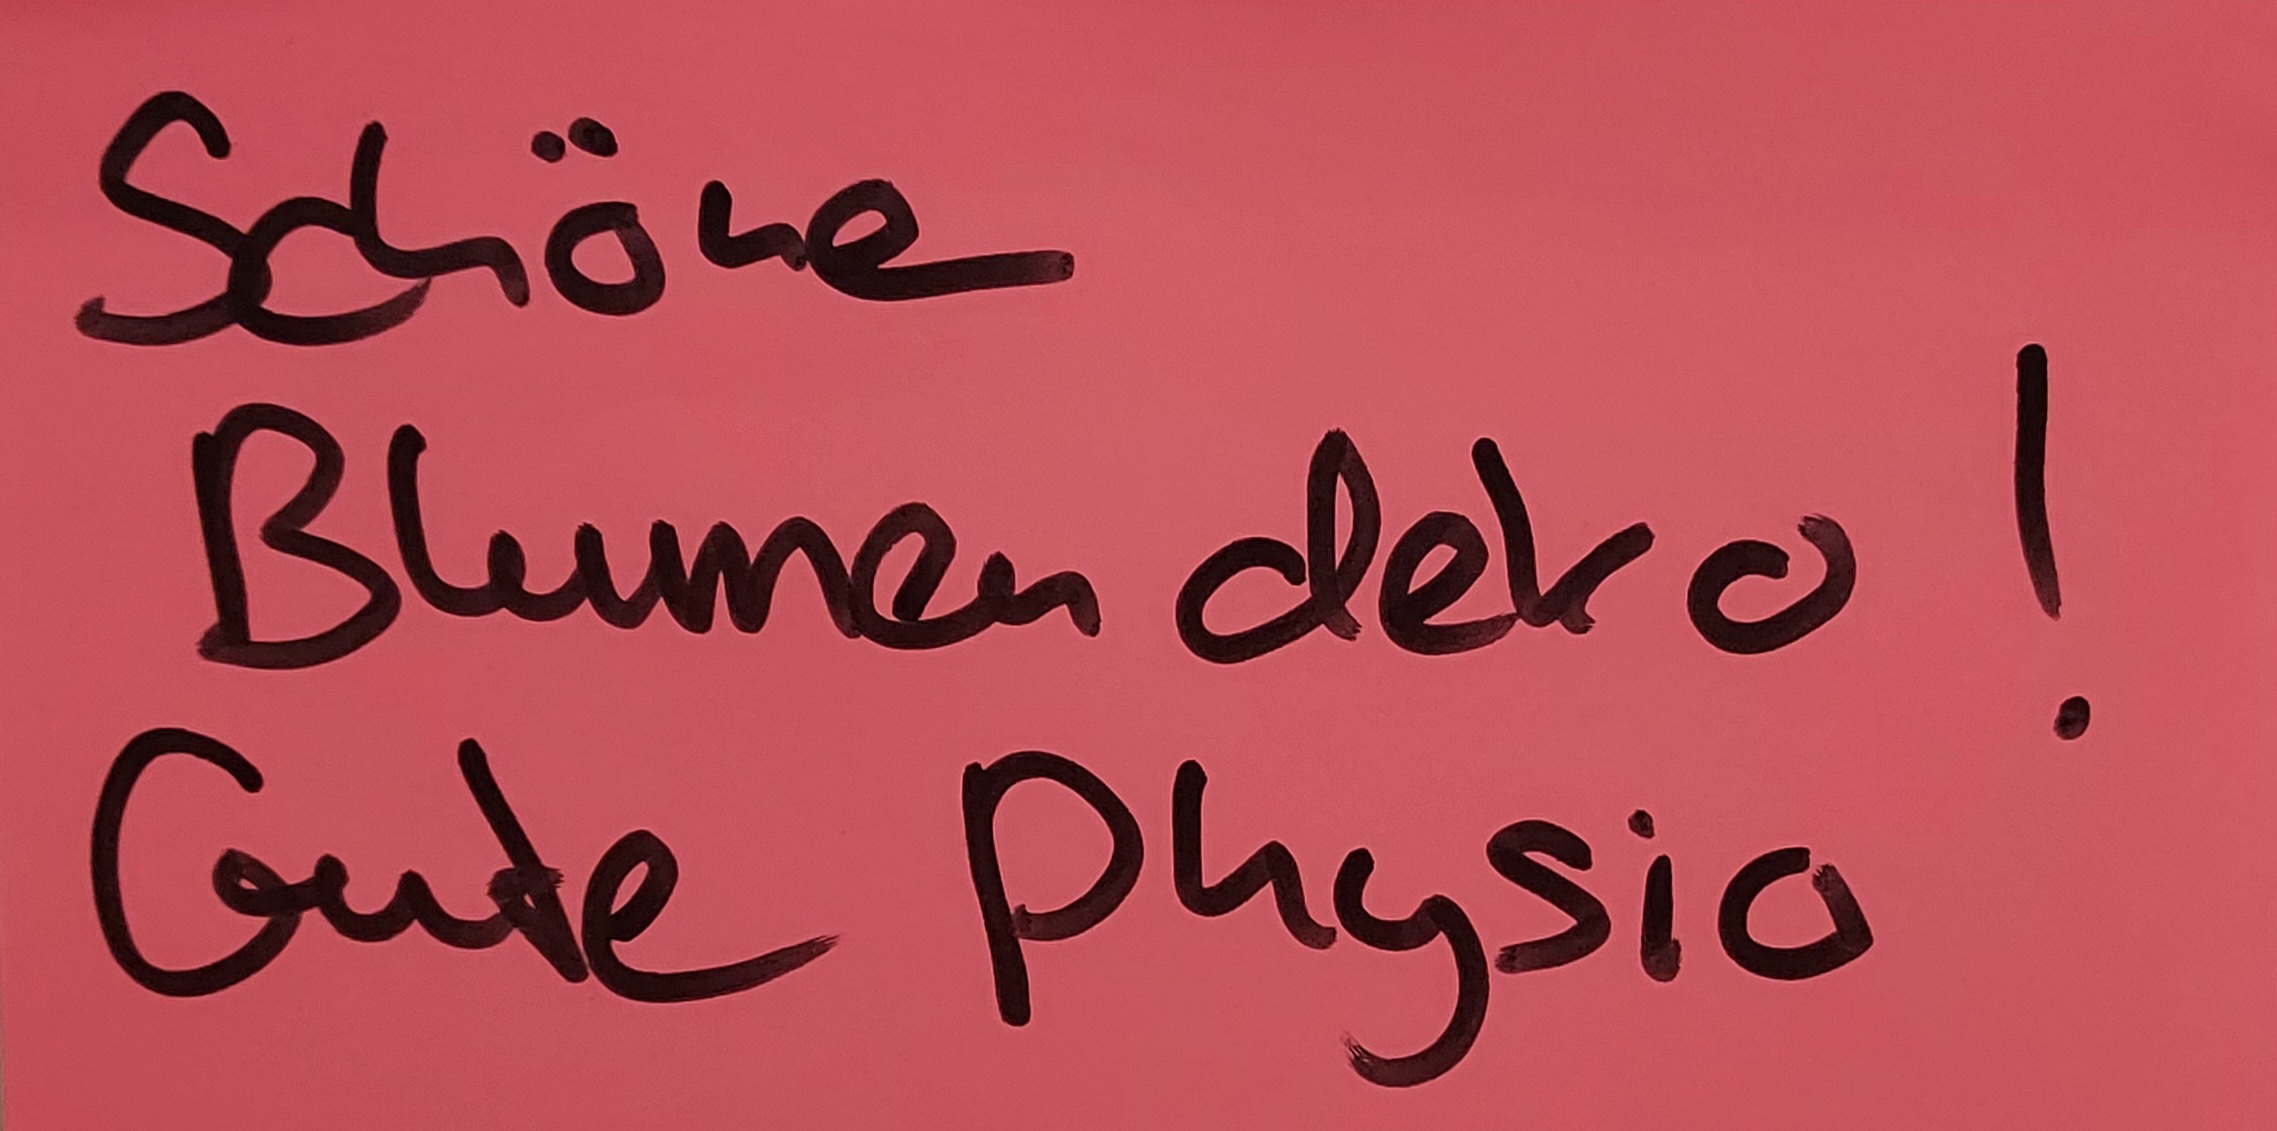 Schöne
Blumendeko!
Gute Physio